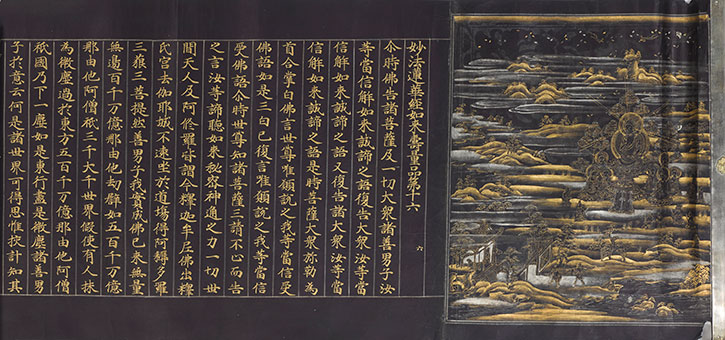 妙法蓮華經如來壽量品第十六
尒時佛告諸菩薩及一切大衆諸善男子汝
等當信解如來誠諦之語復告大衆汝等當
信解如來誠諦之語又復告諸大衆汝等當
信解如來誠諦之語是時菩薩大衆弥勒為
首合掌白佛言世尊唯願說之我等當信受
佛語如是三白已復言唯願說之我等當信
受佛語尒時世尊知諸菩薩三請不止而告
之言汝等諦聽如來秘密神通之力一切世
間天人及阿修羅皆謂今釋迦牟尼佛出釋
氏宮去伽耶城不遠坐於道場得阿耨多羅
三藐三菩提然善男子我實成佛已來無量
無邊百千万億那由他劫譬如五百千万億
那由他阿僧祇三千大千世界假使有人抹
為微塵過於東方五百千万億那由他阿僧
祇國乃下一塵如是東行盡是微塵諸善男
子於意云何是諸世界可得思惟挍計知其
六